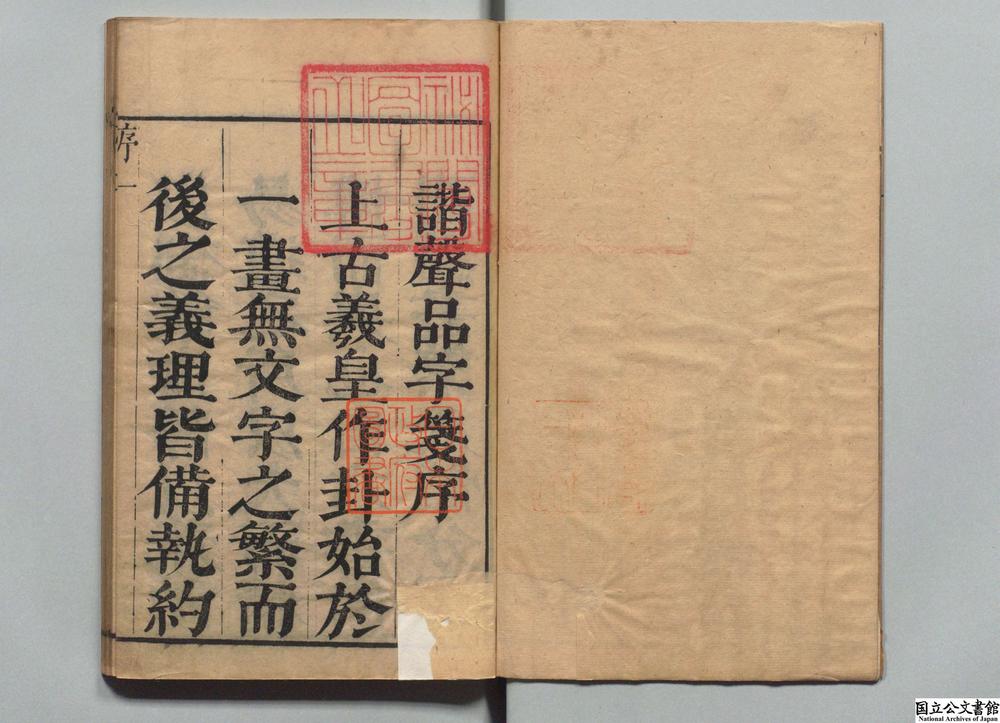 諧聲品字箋序
上古羲皇作卦始於
一畫無文字之繁而
後之義理皆備執約
序 一
国立公文書館
National Archives of Japan